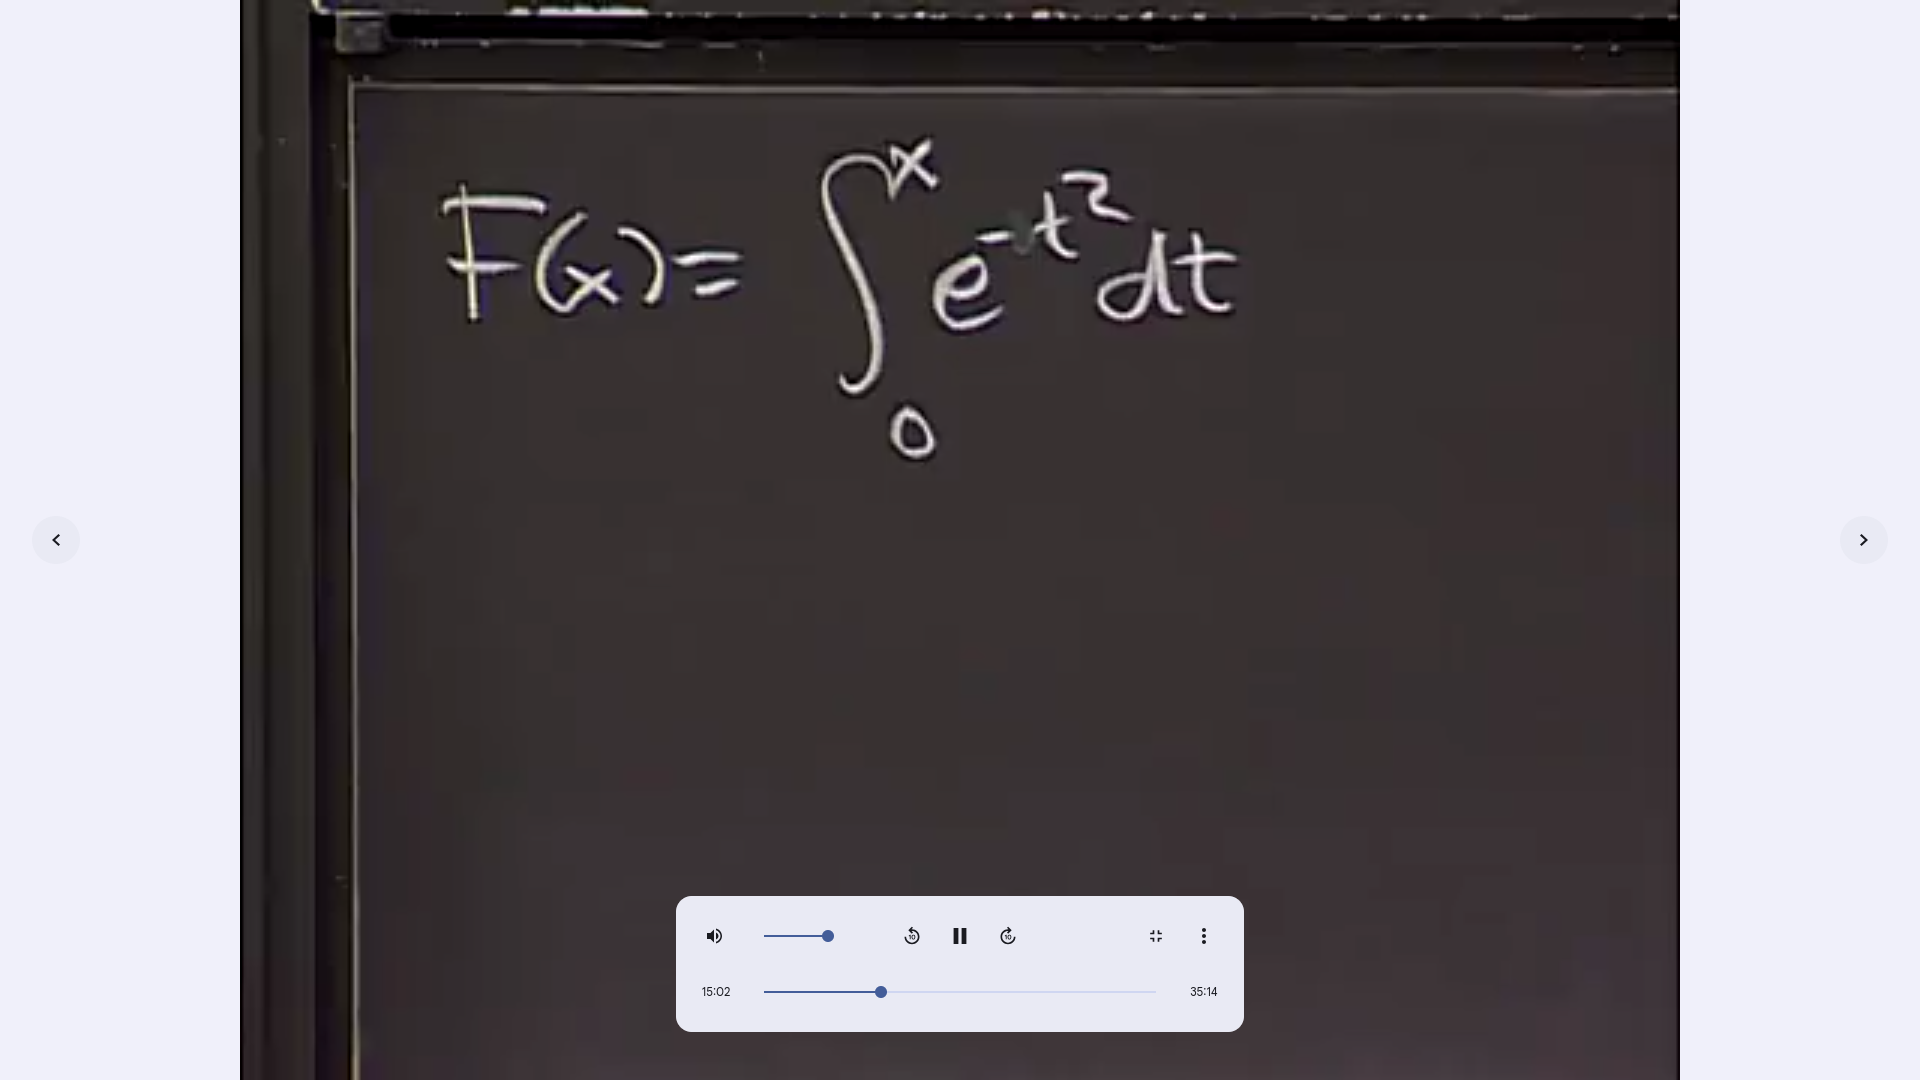 F(x) = ∫₀ˣ e^{-t²} dt
10 10
15:02 35:14